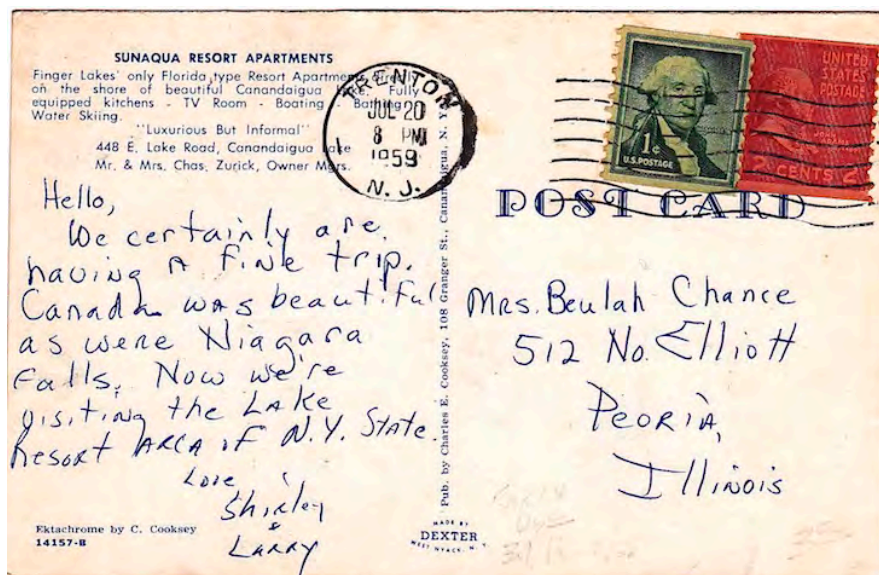 SUNAQUA RESORT APARTMENTS
Finger Lakes' only Florida type Resort Apartments directly
on the shore of beautiful Canandaigua Lake. Fully
equipped kitchens - TV Room - Boating - Bathing -
Water Skiing.
"Luxurious But Informal"
448 E. Lake Road, Canandaigua Lake
Mr. & Mrs. Chas. Zurick, Owner Mgrs.
TRENTON
JUL 20
8 PM
1959
N. J.
1¢
U.S. POSTAGE
UNITED
STATES
POSTAGE
JOHN
ADAMS
2 CENTS 2
POST CARD
Hello,
We certainly are
having a fine trip.
Canada was beautiful
as were Niagara
Falls. Now we're
visiting the Lake
Resort Area of N.Y. State.
Love
Shirley
&
Larry
Mrs. Beulah Chance
512 No. Elliott
Peoria,
Illinois
Pub. by Charles E. Cooksey, 108 Granger St., Canandaigua, N. Y.
Ektachrome by C. Cooksey
14157-B
MADE BY
DEXTER
WEST NYACK, N. Y.